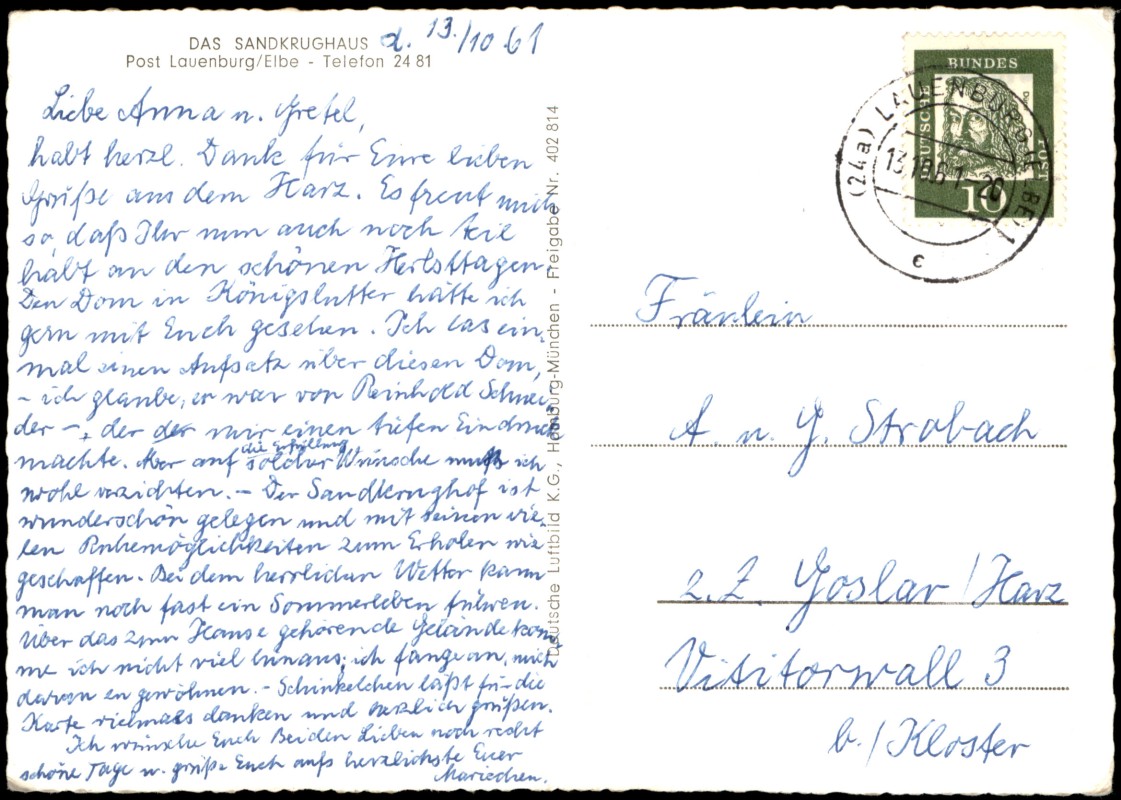 DAS SANDKRUGHAUS
Post Lauenburg/Elbe - Telefon 24 81
d. 13./10.61
Liebe Anna u. Gretel,
habt herzl. Dank für Eure lieben
Grüße aus dem Harz. Es freut mich
so, daß Ihr nun auch noch teil
habt an den schönen Herbsttagen.
Den Dom in Königslutter hätte ich
gern mit Euch gesehen. Ich las ein-
mal einen Aufsatz über diesen Dom,
- ich glaube, er war von Reinhold Schnei-
der -, der mir einen tiefen Eindruck
machte. Aber auf die Erfüllung solcher Wünsche muß ich
wohl verzichten. - Der Sandkrughof ist
wunderschön gelegen und mit seinen vie-
len Ruhemöglichkeiten zum Erholen wie
geschaffen. Bei dem herrlichen Wetter kann
man noch fast ein Sommerleben führen.
Über das zum Hause gehörende Gelände kom-
me ich nicht viel hinaus; ich fange an, mich
daran zu gewöhnen. - Schinkelchen läßt für die
Karte vielmals danken und herzlich grüßen.
Ich wünsche Euch Beiden Lieben noch recht
schöne Tage u. grüße Euch aufs herzlichste Euer
Mariechen.
Deutsche Luftbild K.G., Hamburg-München - Freigabe Nr. 402 814
DEUTSCHE BUNDESPOST
10
(24a) LAUENBURG (ELBE) 1
13.10.61-20
c
Fräulein
A. u. G. Strobach
z. Z. Goslar/Harz
Vititorwall 3
b./Kloster